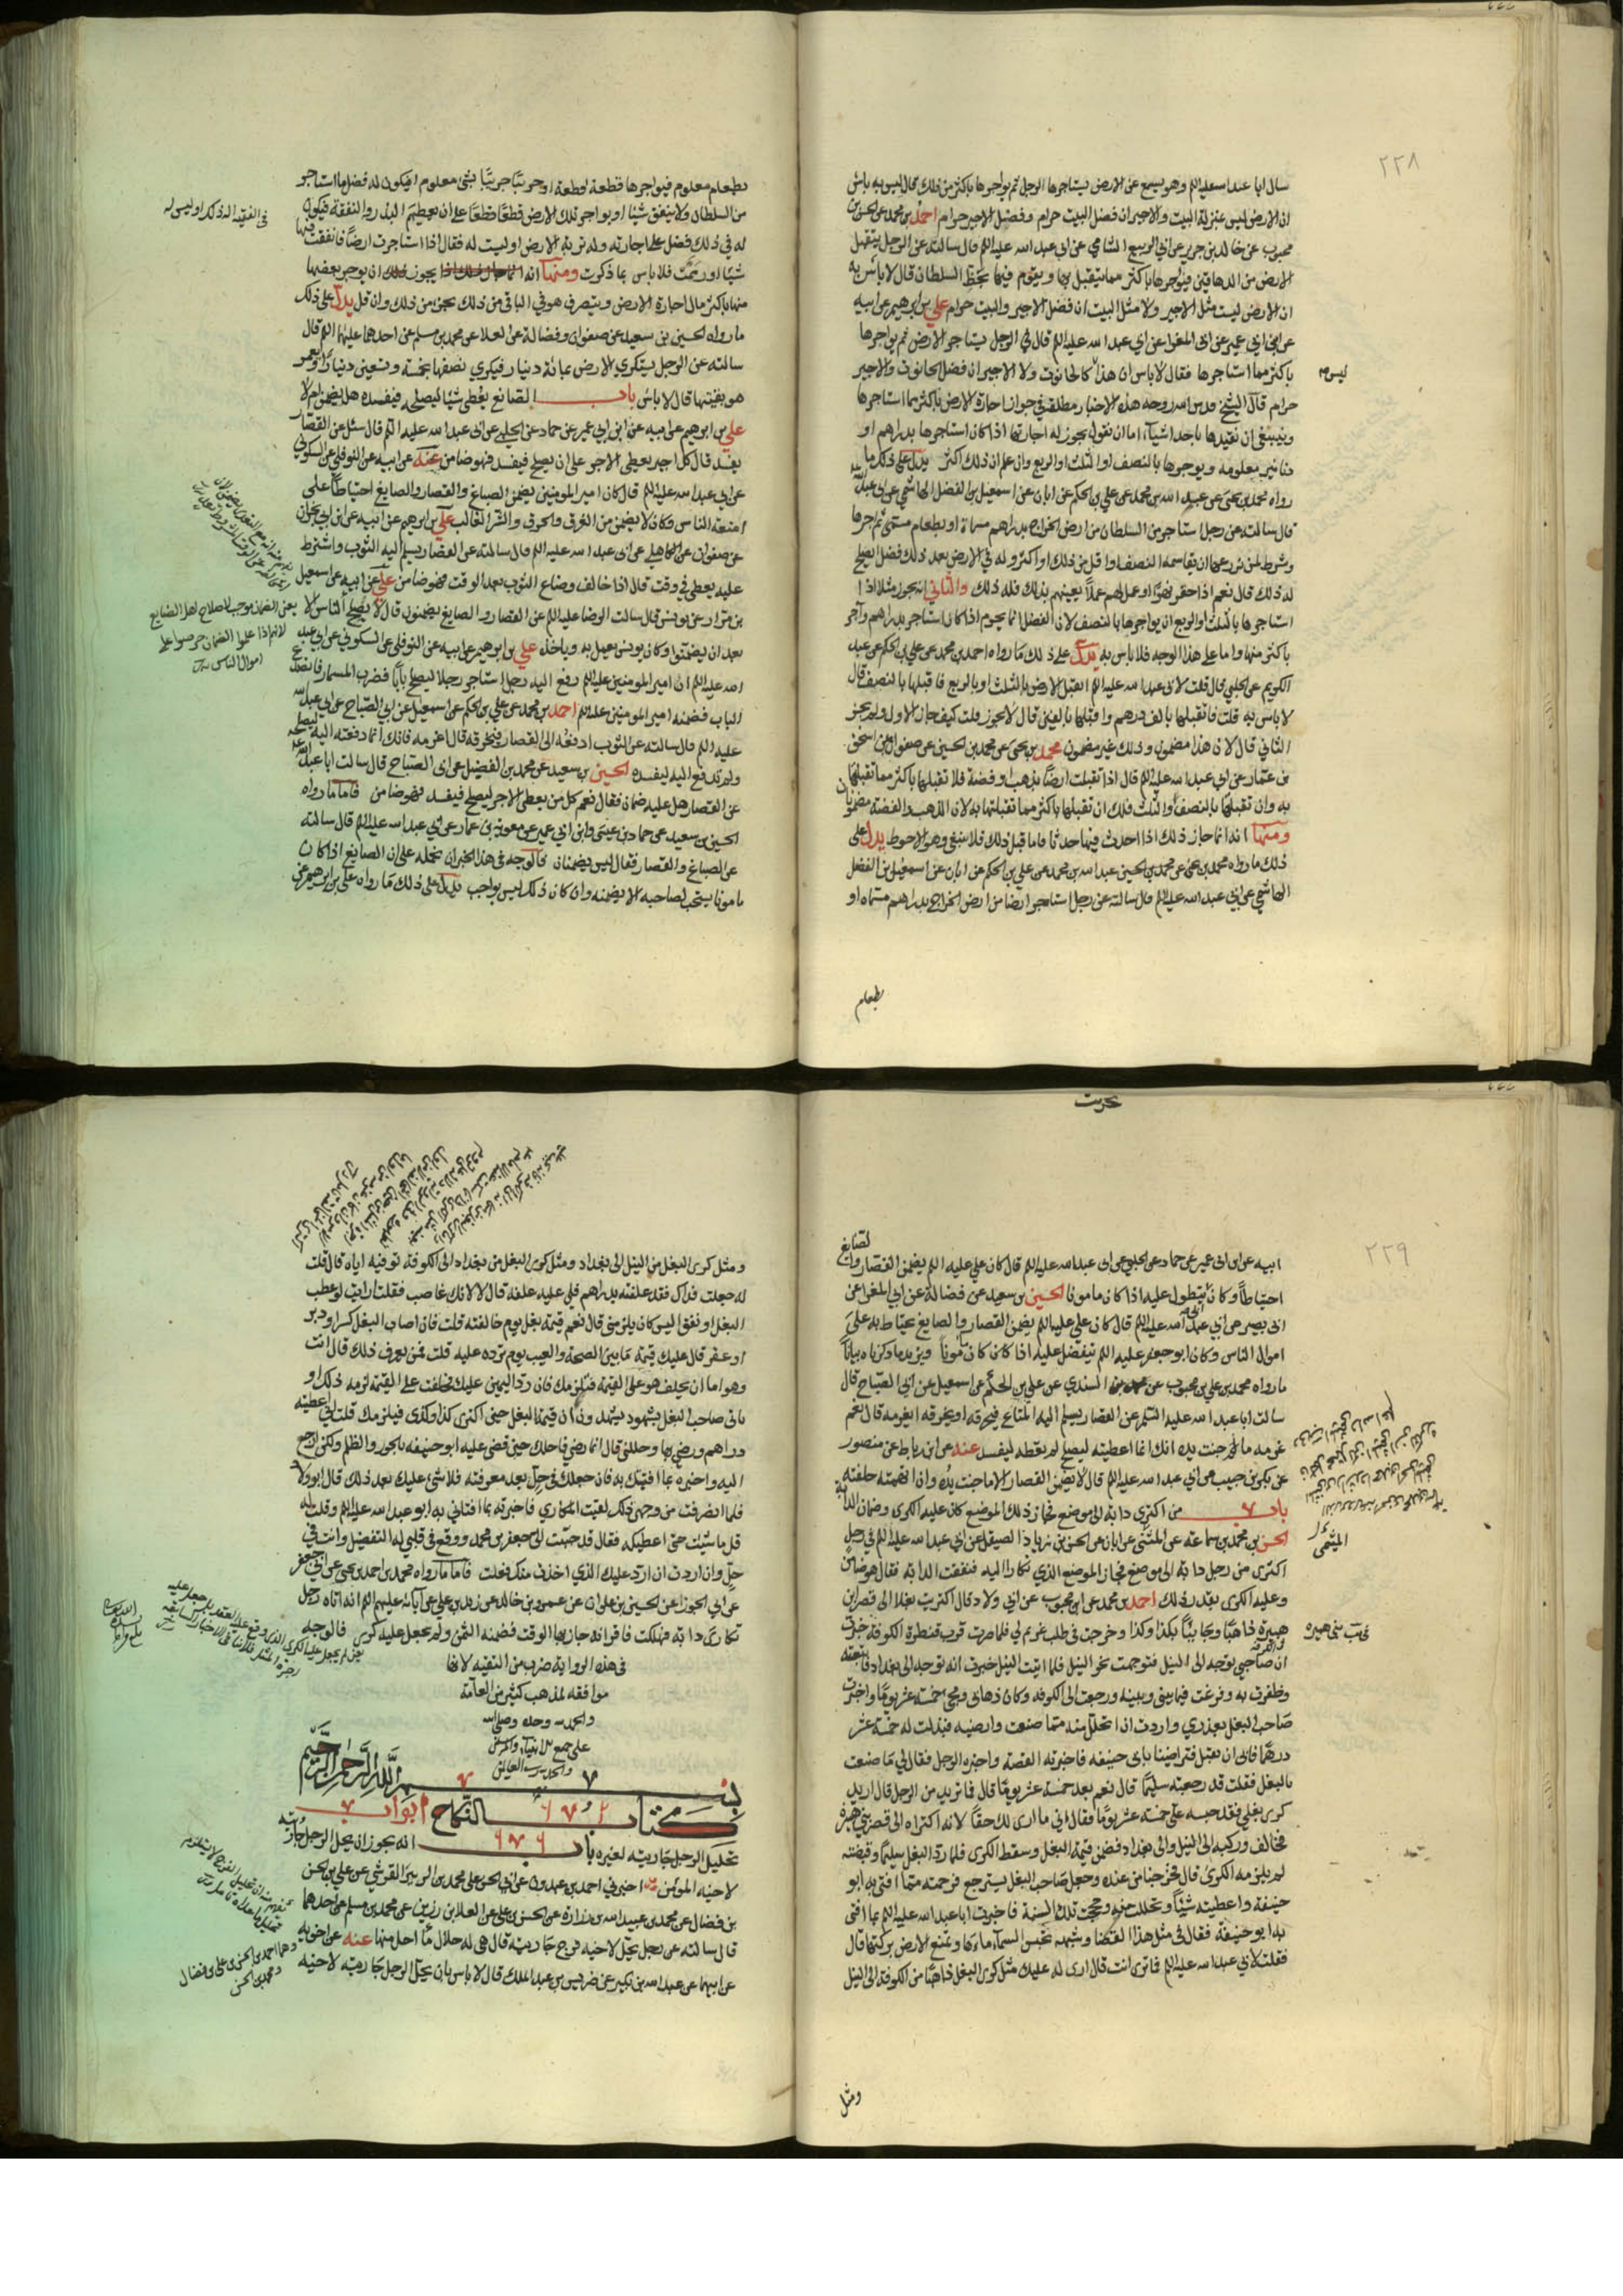 ٢٢٨
سال ابا عبد الله عليه السلم وهو يسمع عن الارض يستاجرها الرجل ثم يواجرها باكثر من ذلك قال ليس به باس
ان الارض ليس بمنزلة البيت والاجير ان فضل البيت حرام وفضل الاجير حرام احمد بن محمد عن الحسن بن
محبوب عن خالد بن جرير عن ابي الربيع الشامي عن ابي عبد الله عليه السلم قال سالته عن الرجل يتقبل
الارض من الدهاقين فيواجرها باكثر مما يتقبل بها ويقوم فيها بحظ السلطان قال لا باس به
ان الارض ليست مثل الاجير ولا مثل البيت ان فضل الاجير والبيت حرام علي بن ابرهيم عن ابيه
عن ابن ابي عمير عن ابي المغرا عن ابي عبد الله عليه السلم قال في الرجل يستاجر الارض ثم يواجرها
باكثر مما استاجرها فقال لا باس ان هذا كالحانوت ولا الاجير ان فضل الحانوت والاجير
ليس
حرام قال الشيخ قدس الله روحه هذه الاخبار مطلقة في جواز اجارة الارض باكثر مما استاجرها
وينبغي ان نقيدها باحد اشياء اما ان نقول يجوز له اجارتها اذا كان استاجرها بدراهم او
دنانير معلومه ويوجرها بالنصف او الثلث او الربع وان علم ان ذلك اكثر يدل على ذلك ما
رواه محمد بن يحيى عن عبد الله بن محمد عن علي بن الحكم عن ابان عن اسمعيل بن الفضل الهاشمي عن ابي عبد الله
قال سالته عن رجل استاجر من السلطان من ارض الخراج بدراهم مسماة او بطعام مسمى ثم اجرها
وشرط لمن يزرعها ان يقاسمه النصف او اقل من ذلك او اكثر وله في الارض بعد ذلك فضل ايصلح
له ذلك قال نعم اذا حفر نهرا او عمل لهم عملا يعينهم بذلك فله ذلك والثاني انه يجوز مثلا اذا
استاجرها بالثلث او الربع ان يواجرها بالنصف لان الفضل انما يحرم اذا كان استاجر بدراهم وآجر
باكثر منها واما على هذا الوجه فلا باس به يدل على ذلك ما رواه احمد بن محمد عن علي بن الحكم عن عبد
الكريم عن الحلبي قال قلت لابي عبد الله عليه السلم اتقبل الارض بالثلث او بالربع فاقبلها بالنصف قال
لا باس به قلت فاتقبلها بالف درهم واقبلها بالفين قال لا يجوز قلت كيف جاز الاول ولم يجز
الثاني قال لان هذا مضمون وذلك غير مضمون محمد بن يحيى عن محمد بن الحسين عن صفوان عن اسحق
بن عمار عن ابي عبد الله عليه السلم قال اذا تقبلت ارضا بذهب او فضة فلا تقبلها باكثر مما تقبلتها
به وان تقبلتها بالنصف والثلث فلك ان تقبلها باكثر مما تقبلتها به لان الذهب والفضة مضمونان
ومنها انه انما جاز ذلك اذا احدث فيها حدثا فاما قبل ذلك فلا ينبغي وهو الاحوط يدل على
ذلك ما رواه محمد بن يحيى عن محمد بن الحسين عبد الله بن محمد عن علي بن الحكم عن ابان عن اسمعيل بن الفضل
الهاشمي عن ابي عبد الله عليه السلم قال سالته عن رجل استاجر ارضا من ارض الخراج بدراهم مسماه او
بطعام
بطعام معلوم فيواجرها قطعة قطعة او جريبا جريبا بشئ معلوم افيكون له فضل ما استاجر
من السلطان ولا ينفق شيئا او يواجر تلك الارض قطعا قطعا على ان يعطيهم البذر والنفقة فيكون
له في ذلك فضل على اجارته وله تربة الارض او ليست له فقال اذا استاجرت ارضا فانفقت فيها
شيئا او رممت فلا باس بما ذكرت ومنها انه يجوز ان يوجر بعضها
منها باكثر مال اجارة الارض ويتصرف هو في الباقي من ذلك بجزء من ذلك وان قل يدل على ذلك
ما رواه الحسين بن سعيد عن صفوان وفضالة عن العلا عن محمد بن مسلم عن احدهما عليهما السلم قال
سالته عن الرجل يستكري الارض بمائة دينار فيكري نصفها بخمسة وتسعين دينارا ويعمر
هو بقيتها قال لا باس باب الصانع يعطى شيئا ليصلحه فيفسده هل يضمن ام لا
علي بن ابرهيم عن ابيه عن ابن ابي عمير عن حماد عن الحلبي عن ابي عبد الله عليه السلم قال سئل عن القصار
يفسد قال كل اجير يعطى الاجر على ان يصلح فيفسد فهو ضامن عنه عن ابيه عن النوفلي عن السكوني
عن ابي عبد الله عليه السلم قال كان امير المومنين يضمن الصباغ والقصار والصايغ احتياطا على
امتعة الناس وكان لا يضمن من الغرق والحرق والشئ الغالب علي بن ابرهيم عن ابيه عن ابن ابي نجران
عن صفوان عن الكاهلي عن ابي عبد الله عليه السلم قال سالته عن القصار يسلم اليه الثوب واشترط
عليه يعطى في وقت قال اذا خالف وضاع الثوب بعد الوقت فهو ضامن علي عن ابيه عن اسمعيل
بن مرار عن يونس قال سالت الرضا عليه السلم عن القصار والصايغ يضمنون قال لا يصلح الناس الا
بعد ان يضمنوا وكان يونس يعمل به وياخذ علي بن ابرهيم عن ابيه عن النوفلي عن السكوني عن ابي عبد
الله عليه السلم ان امير المومنين عليه السلم رفع اليه رجل استاجر رجلا ليصلح بابا فضرب المسمار فانصدع
الباب فضمنه امير المومنين عليه السلم احمد بن محمد عن علي بن الحكم عن اسمعيل عن ابي الصباح عن ابي عبد الله
عليه السلم قال سالته عن الثوب ادفعه الى القصار فيخرقه قال اغرمه فانك انما دفعته اليه ليصلحه
ولم تدفع اليه ليفسده الحسين بن سعيد عن محمد بن الفضيل عن ابي الصباح قال سالت ابا عبد الله
عن القصار هل عليه ضمان فقال نعم كل من يعطى الاجر ليصلح فيفسد فهو ضامن فاما ما رواه
الحسين بن سعيد عن حماد بن عيسى وابن ابي عمير عن معوية بن عمار عن ابي عبد الله عليه السلم قال سالته
عن الصباغ والقصار فقال ليس يضمنان فالوجه في هذا الخبر ان نحمله على ان الصايغ اذا كان
مامونا يستحب لصاحبه الا يضمنه وان كان ذلك ليس بواجب يدل على ذلك ما رواه علي بن ابرهيم عن
في الفقيه اله ذلك او ليس له
يعني الضمان موجب لاصلاح اهل الصنايع
لانهم اذا علموا الضمان حرصوا على
اموال الناس
٢٢٩
ابيه عن ابن ابي عمير عن حماد عن الحلبي عن ابي عبد الله عليه السلم قال كان علي عليه السلم يضمن القصار والصايغ
احتياطا وكان ابي يتطول عليه اذا كان مامونا الحسين بن سعيد عن فضالة عن ابي المغرا عن
ابي بصير عن ابي عبد الله عليه السلم قال كان علي عليه السلم يضمن القصار والصايغ يحتاط به على
اموال الناس وكان ابو جعفر عليه السلم يتفضل عليه اذا كان مامونا ويزيد ما ذكرناه بيانا
ما رواه محمد بن علي بن محبوب عن السندي عن علي بن الحكم عن اسمعيل عن ابي الصباح قال
سالت ابا عبد الله عليه السلم عن القصار يسلم اليه المتاع فيحرقه او يخرقه ايغرمه قال نعم
غرمه ما جنت يده انك انما اعطيته ليصلح لم تعطه ليفسد عنه عن ابن رباط عن منصور
عن بكر بن حبيب عن ابي عبد الله عليه السلم قال لا يضمن القصار الا ما جنت يده وان اتهمته حلفته
باب من اكترى دابة الى موضع فجاز ذلك الموضع كان عليه الكرى وضمان الدابة
الحسن بن محمد بن سماعة عن الميثمي عن ابان عن الحسن بن زياد الصيقل عن ابي عبد الله عليه السلم في رجل
الميثمي
اكترى من رجل دابة الى موضع فجاز الموضع الذي تكارا اليه فنفقت الدابة فقال هو ضامن
وعليه الكرى بقدر ذلك احمد بن محمد عن ابن محبوب عن ابي ولاد قال اكتريت بغلا الى قصر ابن
هبيرة ذاهبا وجاييا بكذا وكذا وخرجت في طلب غريم لي فلما صرت قرب قنطرة الكوفة خبرت
ان صاحبي توجه الى النيل فتوجهت نحو النيل فلما اتيت النيل خبرت انه توجه الى بغداد فاتبعته
وظفرت به وفرغت فيما بيني وبينه ورجعت الى الكوفه وكان ذهابي ومجيئ خمسة عشر يوما واخبرت
صاحب البغل بعذري واردت ان اتحلل منه مما صنعت وارضيه فبذلت له خمسة عشر
درهما فابى ان يقبل فتراضينا بابي حنيفه فاخبرته القصة واخبره الرجل فقال لي ما صنعت
بالبغل فقلت قد رجعته سليما قال نعم بعد خمسة عشر يوما قال فما تريد من الرجل قال اريد
كرى بغلي فقد حبسه علي خمسة عشر يوما فقال اني ما ارى لك حقا لانه اكتراه الى قصر بني هبيرة
فخالف وركبه الى النيل والى بغداد فضمن قيمة البغل وسقط الكرى فلما رد البغل سليما وقبضته
لم يلزمه الكرى قال فخرجنا من عنده وجعل صاحب البغل يسترجع فرحمته مما افتى به ابو
حنيفة واعطيته شيئا وتحللت منه وحججت تلك السنة فاخبرت ابا عبد الله عليه السلم بما افتى
به ابو حنيفة فقال في مثل هذا القضا وشبهه تحبس السماء ماءها وتمنع الارض بركتها قال
فقلت لابي عبد الله عليه السلم فما ترى انت قال ارى له عليك مثل كرى البغل ذاهبا من الكوفة الى النيل
ومثل
ومثل كرى البغل من النيل الى بغداد ومثل كرى البغل من بغداد الى الكوفة توفيه اياه قال قلت
له جعلت فداك فقد علفته بدراهم فلي عليه علفه قال لا لانك غاصب فقلت ارايت لو عطب
البغل او نفق اليس كان يلزمني قال نعم قيمة بغل يوم خالفته قلت فان اصاب البغل كسر او دبر
او عقر قال عليك قيمة ما بين الصحة والعيب يوم ترده عليه قلت فمن يعرف ذلك قال انت
وهو اما ان يحلف هو على القيمة فيلزمك فان رد اليمين عليك فحلفت على القيمة لزمه ذلك او
ياتي صاحب البغل بشهود يشهدون ان قيمة البغل حين اكترى كذا وكذى فيلزمك قلت اني اعطيته
دراهم ورضي بها وحللني قال انما رضي فاحلك حين قضى عليه ابو حنيفه بالجور والظلم ولكن ارجع
اليه واخبره بما افتيتك به فان جعلك في حل بعد معرفته فلا شئ عليك بعد ذلك قال ابو ولاد
فلما انصرفت من وجهي ذلك لقيت المكاري فاخبرته بما افتاني به ابو عبد الله عليه السلم وقلت له
قل ما شئت حتى اعطيكه فقال قد حببت الي جعفر بن محمد ووقع في قلبي له التفضيل وانت في
حل وان اردت ان ارد عليك الذي اخذت منك فعلت فاما ما رواه محمد بن احمد بن يحيى عن ابي جعفر
عن ابي الجوزا عن الحسين بن علوان عن عمرو بن خالد عن زيد بن علي عن آبائه عليهم السلم انه اتاه رجل
تكارى دابة فهلكت فاقر انه جاز بها الوقت فضمنه الثمن ولم يجعل عليه كرى فالوجه
في هذه الرواية ضرب من التقيه لانها
موافقه لمذهب كثير من العامة
والحمد لله وحده وصلى الله
على جميع الانبياء
والحمد لله رب العالمين
بسم الله الرحمن الرحيم
كتاب النكاح ابواب
تحليل الرجل جاريته لغيره باب انه يجوز ان يحل الرجل جاريته
لاخيه المومن اخبرني احمد بن عبدون عن ابي الحسن علي بن محمد بن الزبير القرشي عن علي بن الحسن
بن فضال عن محمد بن عبيد الله بن زرارة عن الحسن بن علي عن العلا بن رزين عن محمد بن مسلم عن احدهما
قال سالته عن رجل يحل لاخيه فرج جاريته قال هي له حلال ما احل منها عنه عن اخويه
عن ابيهما عن عبد الله بن بكير عن ضريس بن عبد الملك قال لا باس بان يحل الرجل جاريته لاخيه
وهما احمد بن الحسن بن علي بن فضال
ومحمد بن الحسن